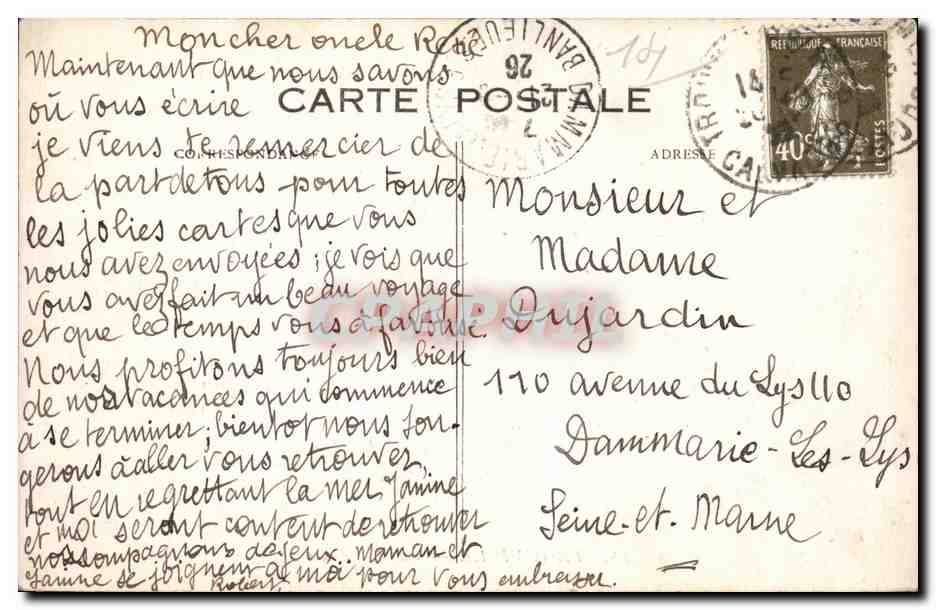 Mon cher oncle René
Maintenant que nous savons
où vous écrire
CARTE POSTALE
je viens te remercier de
CORRESPONDANCE
ADRESSE
la part de tous pour toutes
les jolies cartes que vous
nous avez envoyées ; je vois que
vous avez fait un beau voyage
et que le temps vous a favorisé.
Nous profitons toujours bien
de nos vacances qui commence
à se terminer ; bientot nous son-
gerons à aller vous retrouver
tout en regrettant la mer Janine
et moi seront content de retrouver
nos compagnons de jeux. maman et
Janine se joignent à moi pour vous embrasser.
Robert
Monsieur et
Madame
Dujardin
110 avenue du Lys 110
Dammarie-Les-Lys
Seine-et-Marne
REPUBLIQUE FRANÇAISE
40c
POSTES
BANLIEUE DAMMARIE
26
14
CRAPAEL